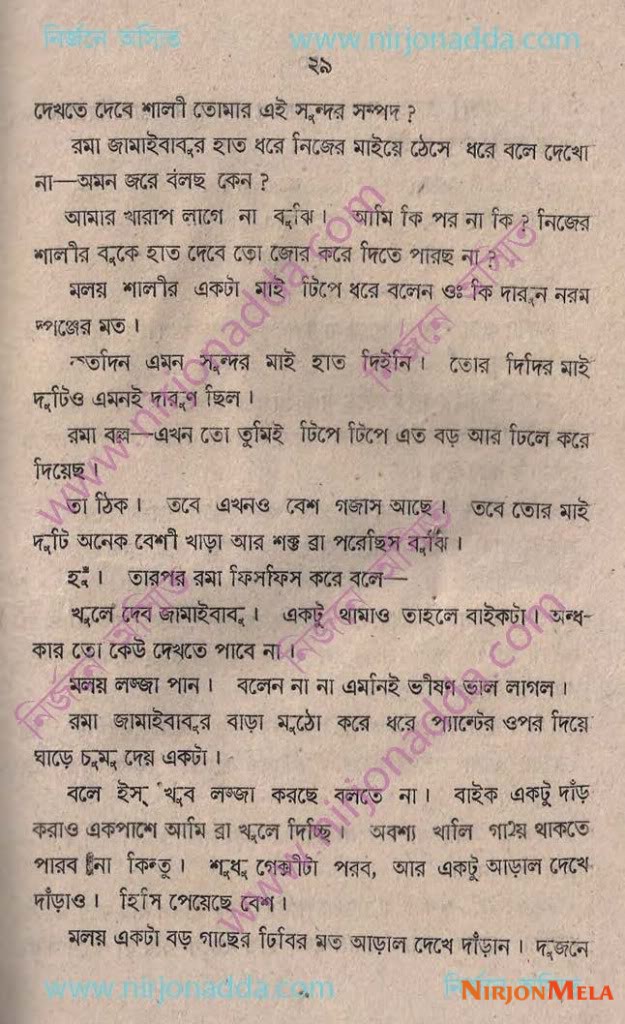 নির্জনে অসিত www.nirjonadda.com
২৯
দেখতে দেবে শালী তোমার এই সুন্দর সম্পদ ?
রমা জামাইবাবুর হাত ধরে নিজের মাইয়ে ঠেসে ধরে বলে দেখো
না—অমন জরে বলছ কেন ?
আমার খারাপ লাগে না বুঝি। আমি কি পর না কি ? নিজের
শালীর বুকে হাত দেবে তো জোর করে দিতে পারছ না ?
মলয় শালীর একটা মাই টিপে ধরে বলেন ওঃ কি দারুন নরম
স্পঞ্জের মত।
এমন সুন্দর মাই হাত দিইনি। তোর দিদির মাই
দুটিও এমনই দারুণ ছিল।
রমা বল্ল—এখন তো তুমিই টিপে টিপে এত বড় আর ঢিলে করে
দিয়েছ।
তা ঠিক। তবে এখনও বেশ গর্জাস আছে। তবে তোর মাই
দুটি অনেক বেশী খাড়া আর শক্ত ব্রা পরেছিস বুঝি।
হুঁ। তারপর রমা ফিসফিস করে বলে—
খুলে দেব জামাইবাবু। একটু থামাও তাহলে বাইকটা। অন্ধ-
কার তো কেউ দেখতে পাবে না।
মলয় লজ্জা পান। বলেন না না এমনিই ভীষণ ভাল লাগল।
রমা জামাইবাবুর বাড়া মুঠো করে ধরে প্যান্টের ওপর দিয়ে
ঘাড়ে চুমু দেয় একটা।
বলে ইস্ খুব লজ্জা করছে বলতে না। বাইক একটু দাঁড়
করাও একপাশে আমি ব্রা খুলে দিচ্ছি। অবশ্য খালি গায়ে থাকতে
পারব না কিন্তু। শুধু গেঞ্জীটা পরব, আর একটু আড়াল দেখে
দাঁড়াও। হিসি পেয়েছে বেশ।
মলয় একটা বড় গাছের ঢিবির মত আড়াল দেখে দাঁড়ান। দুজনে
www.nirjonadda.com
NIRJONMELA